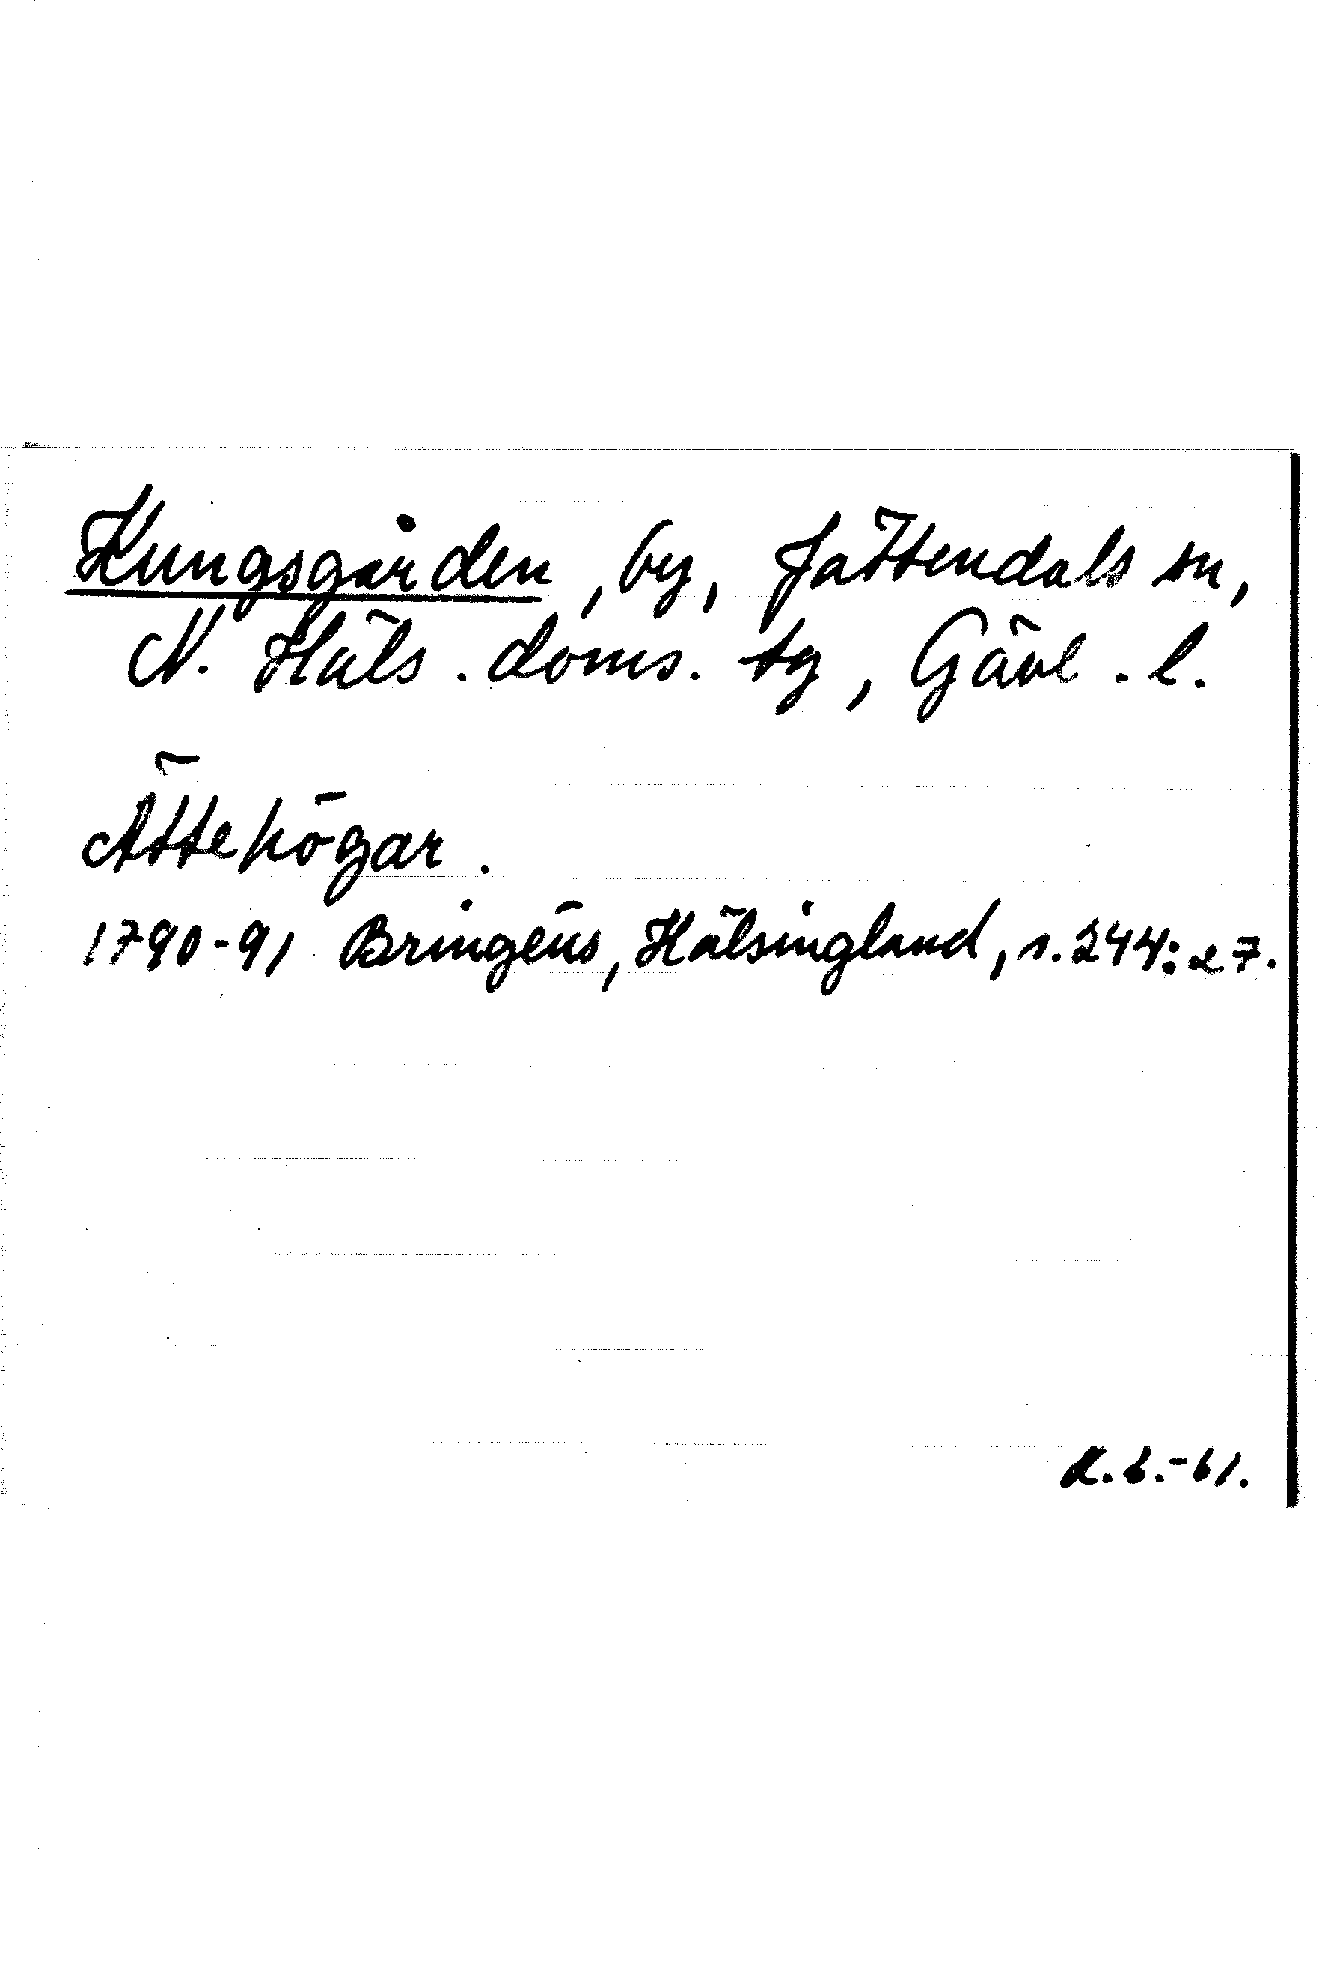 Kungsgården, by, Jättendals sn,
N. Häls. doms. tg, Gävl. l.
Ättehögar.
1790-91 Bringéus, Hälsingland, s. 244:27.
K.B.-61.